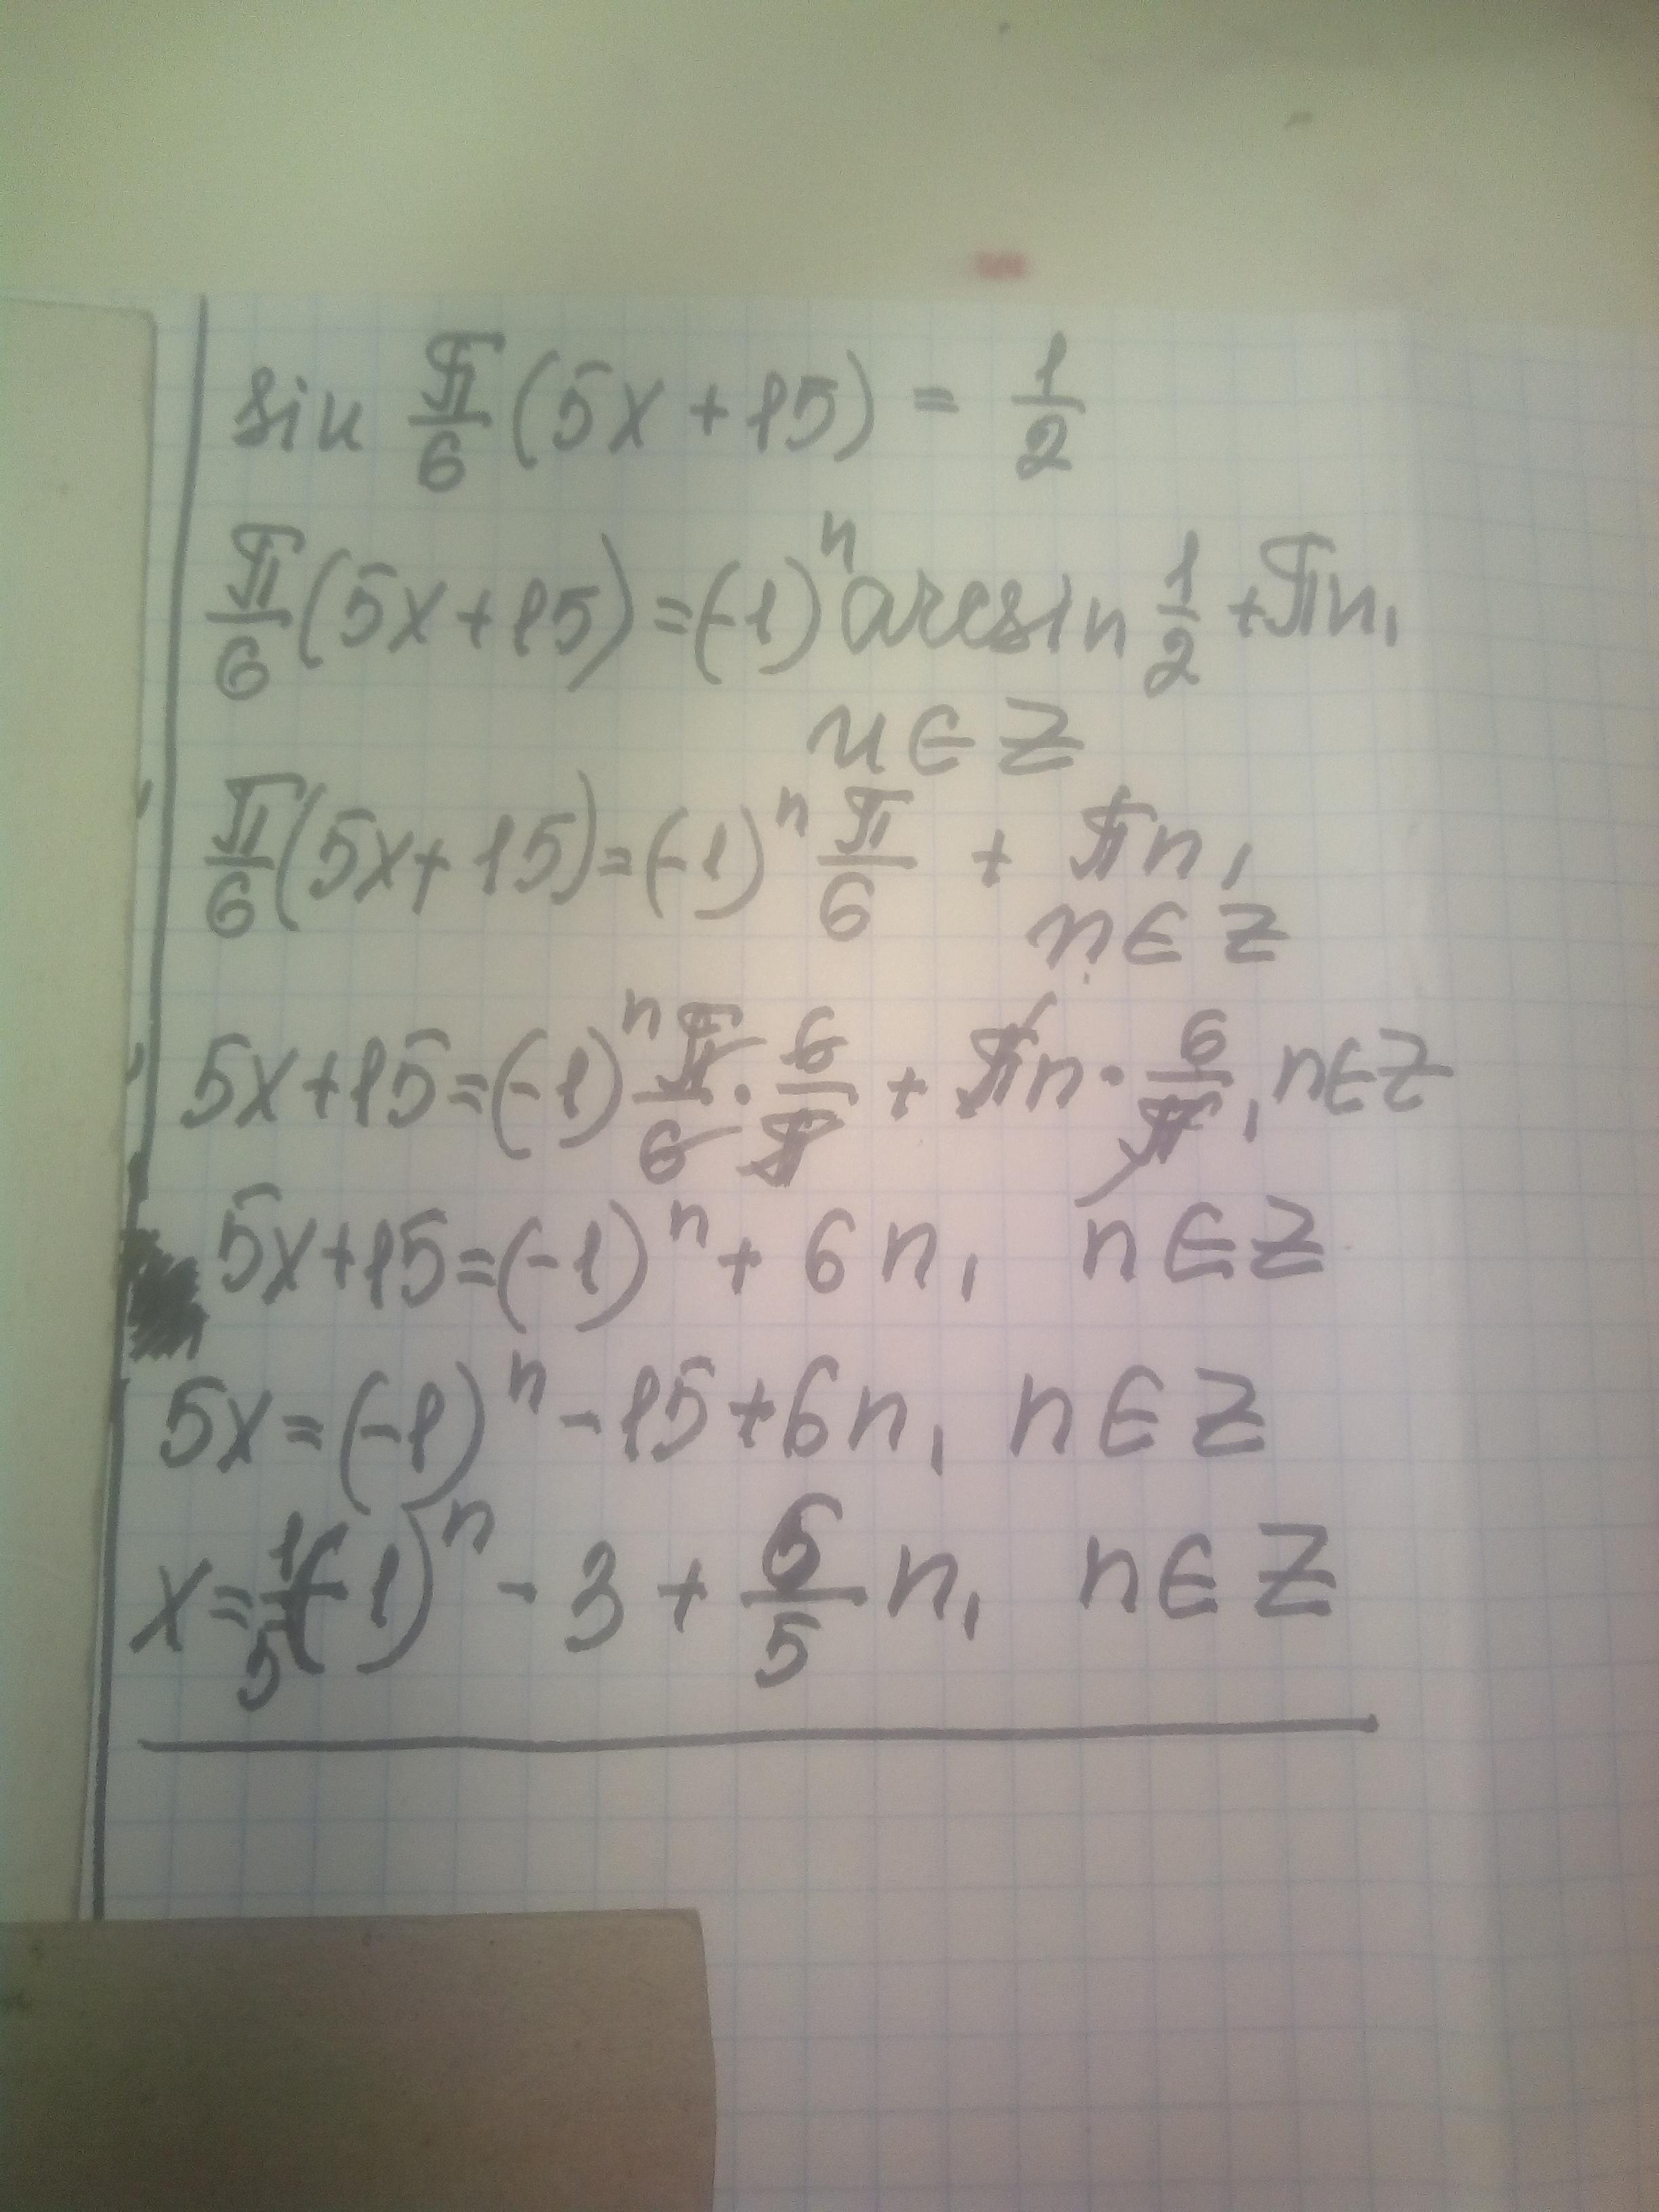 sin π/6 (5x + 15) = 1/2
π/6 (5x + 15) = (-1)ⁿ arcsin 1/2 + πn,
n ∈ Z
π/6 (5x + 15) = (-1)ⁿ π/6 + πn,
n ∈ Z
5x + 15 = (-1)ⁿ π/6 · 6/π + πn · 6/π, n ∈ Z
5x + 15 = (-1)ⁿ + 6n, n ∈ Z
5x = (-1)ⁿ - 15 + 6n, n ∈ Z
x = 1/5 (-1)ⁿ - 3 + 6/5 n, n ∈ Z